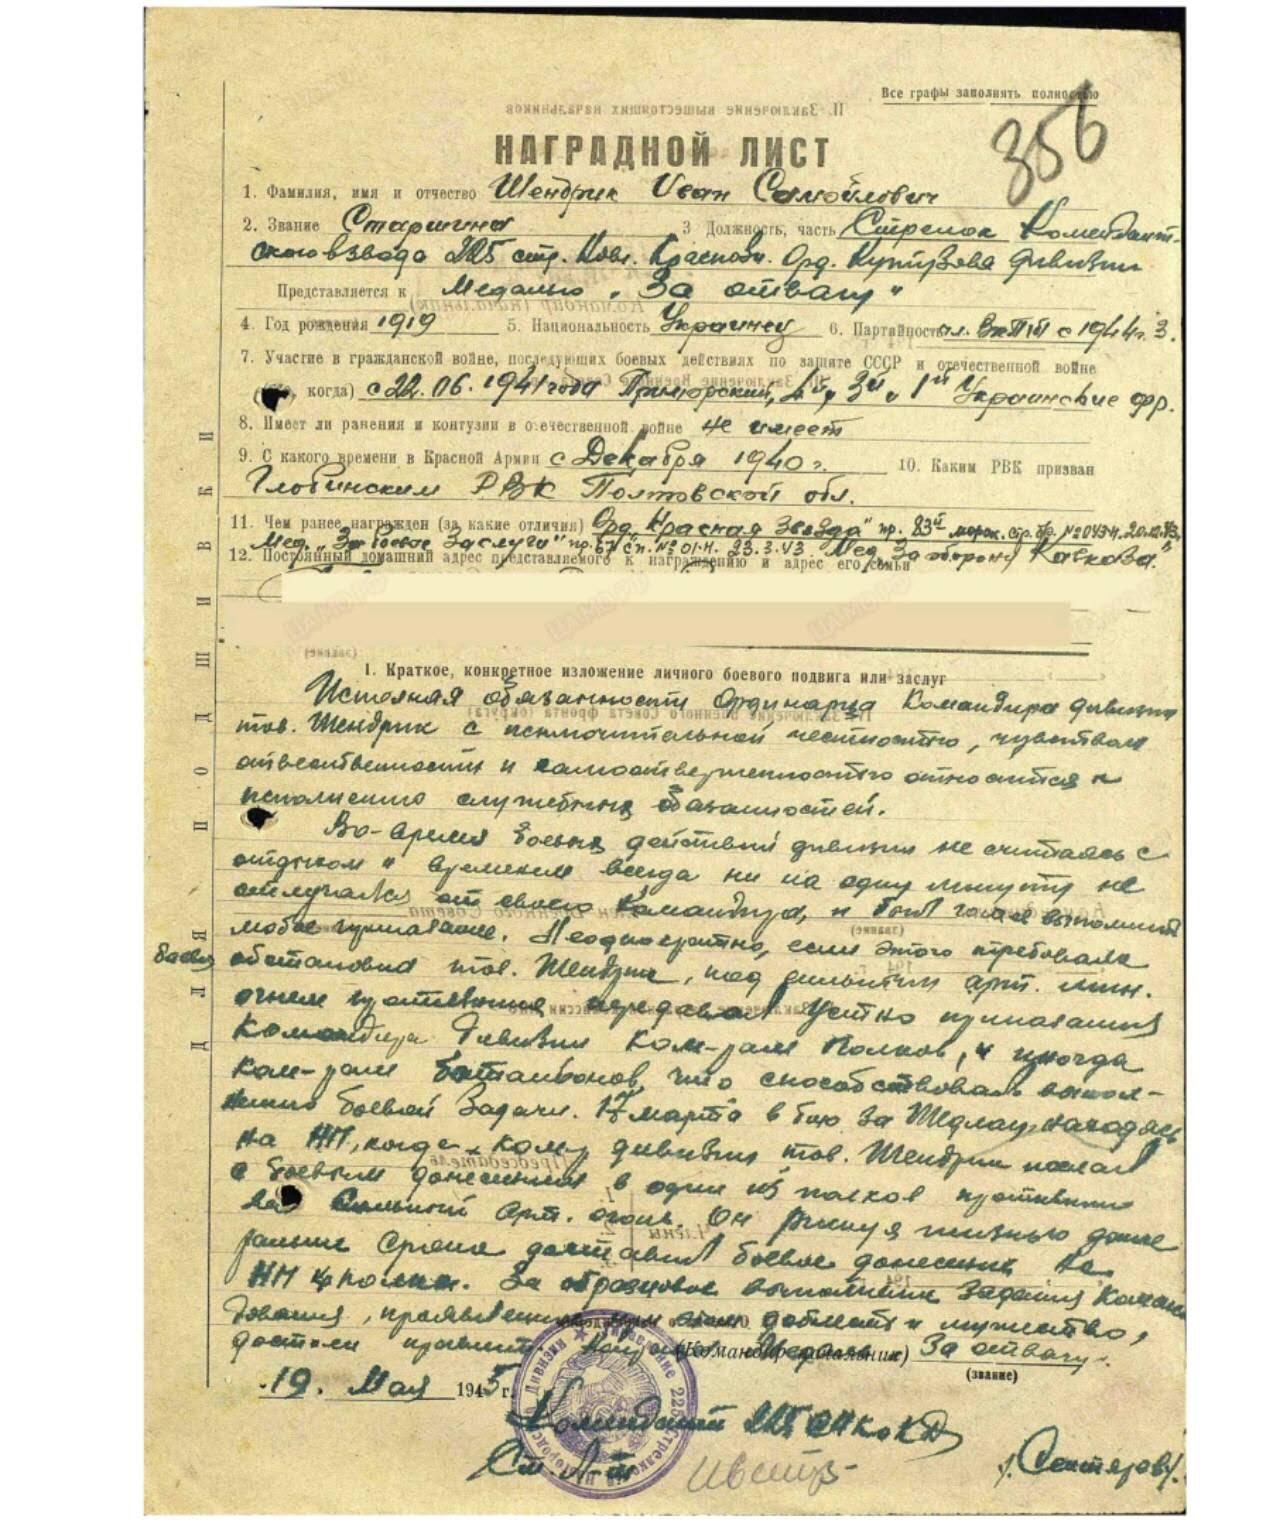 Все графы заполнять полностью
356
НАГРАДНОЙ ЛИСТ
1. Фамилия, имя и отчество Шендрик Иван Самойлович
2. Звание Старшина 3 Должность, часть Стрелок Комендант-
ского взвода 225 стр. Новг. Краснозн. Орд. Кутузова дивизии
Представляется к Медалью „За отвагу"
4. Год рождения 1919 5. Национальность Украинец 6. Партийность чл. ВКПб с 1944 г.
7. Участие в гражданской войне, последующих боевых действиях по защите СССР и отечественной войне
(где, когда) с 22.06.1941 года Приморский, 4й, 3й, 1й Украинские фр.
8. Имеет ли ранения и контузии в отечественной войне не имеет
9. С какого времени в Красной Армии с Декабря 1940 г. 10. Каким РВК призван
Глобинским РВК Полтовской обл.
11. Чем ранее награжден (за какие отличия) Орд. „Красная Звезда" пр. 83й морск. стр. бр.
Мед. „За боевые Заслуги" 23.3.43 Мед. За оборону Кавказа."
12. Постоянный домашний адрес представляемого к награждению и адрес его семьи
ДЛЯ ПОДШИВКИ
I. Краткое, конкретное изложение личного боевого подвига или заслуг
Исполняя обязанности Ординарца Командира дивизии
тов. Шендрик с исключительной честностью, чувством
ответственности и самоотверженностью относится к
исполнению служебных обязанностей.
Во-время боевых действий дивизии не считаясь с
отдыхом и временем всегда ни на одну минуту не
отлучался от своего Командира, и был готов выполнить
любое приказание. Неоднократно, если этого требовала
боевая обстановка тов. Шендрик, под сильным арт. мин.
огнем противника передавал Устно приказания
Командира Дивизии Ком-рам Полков, и иногда
Ком-рам батальонов, что способствовало выпол-
нению боевой Задачи. 17 марта в бою за находясь
на НП, когда ком-р дивизии тов. Шендрик послал
с боевым донесением в один из полков противник
вел Сильный Арт. огонь. Он рискуя жизнью
доставил боевое донесение на
НП полка. За образцовое выполнение Задания Коман-
дования, доблесть и мужество,
достоин правит. Награды Медаль За отвагу.
(Командир-начальник)
(звание)
19. Мая 1945 г.
Комендант 225 СНКоКД
Ст. Л-т